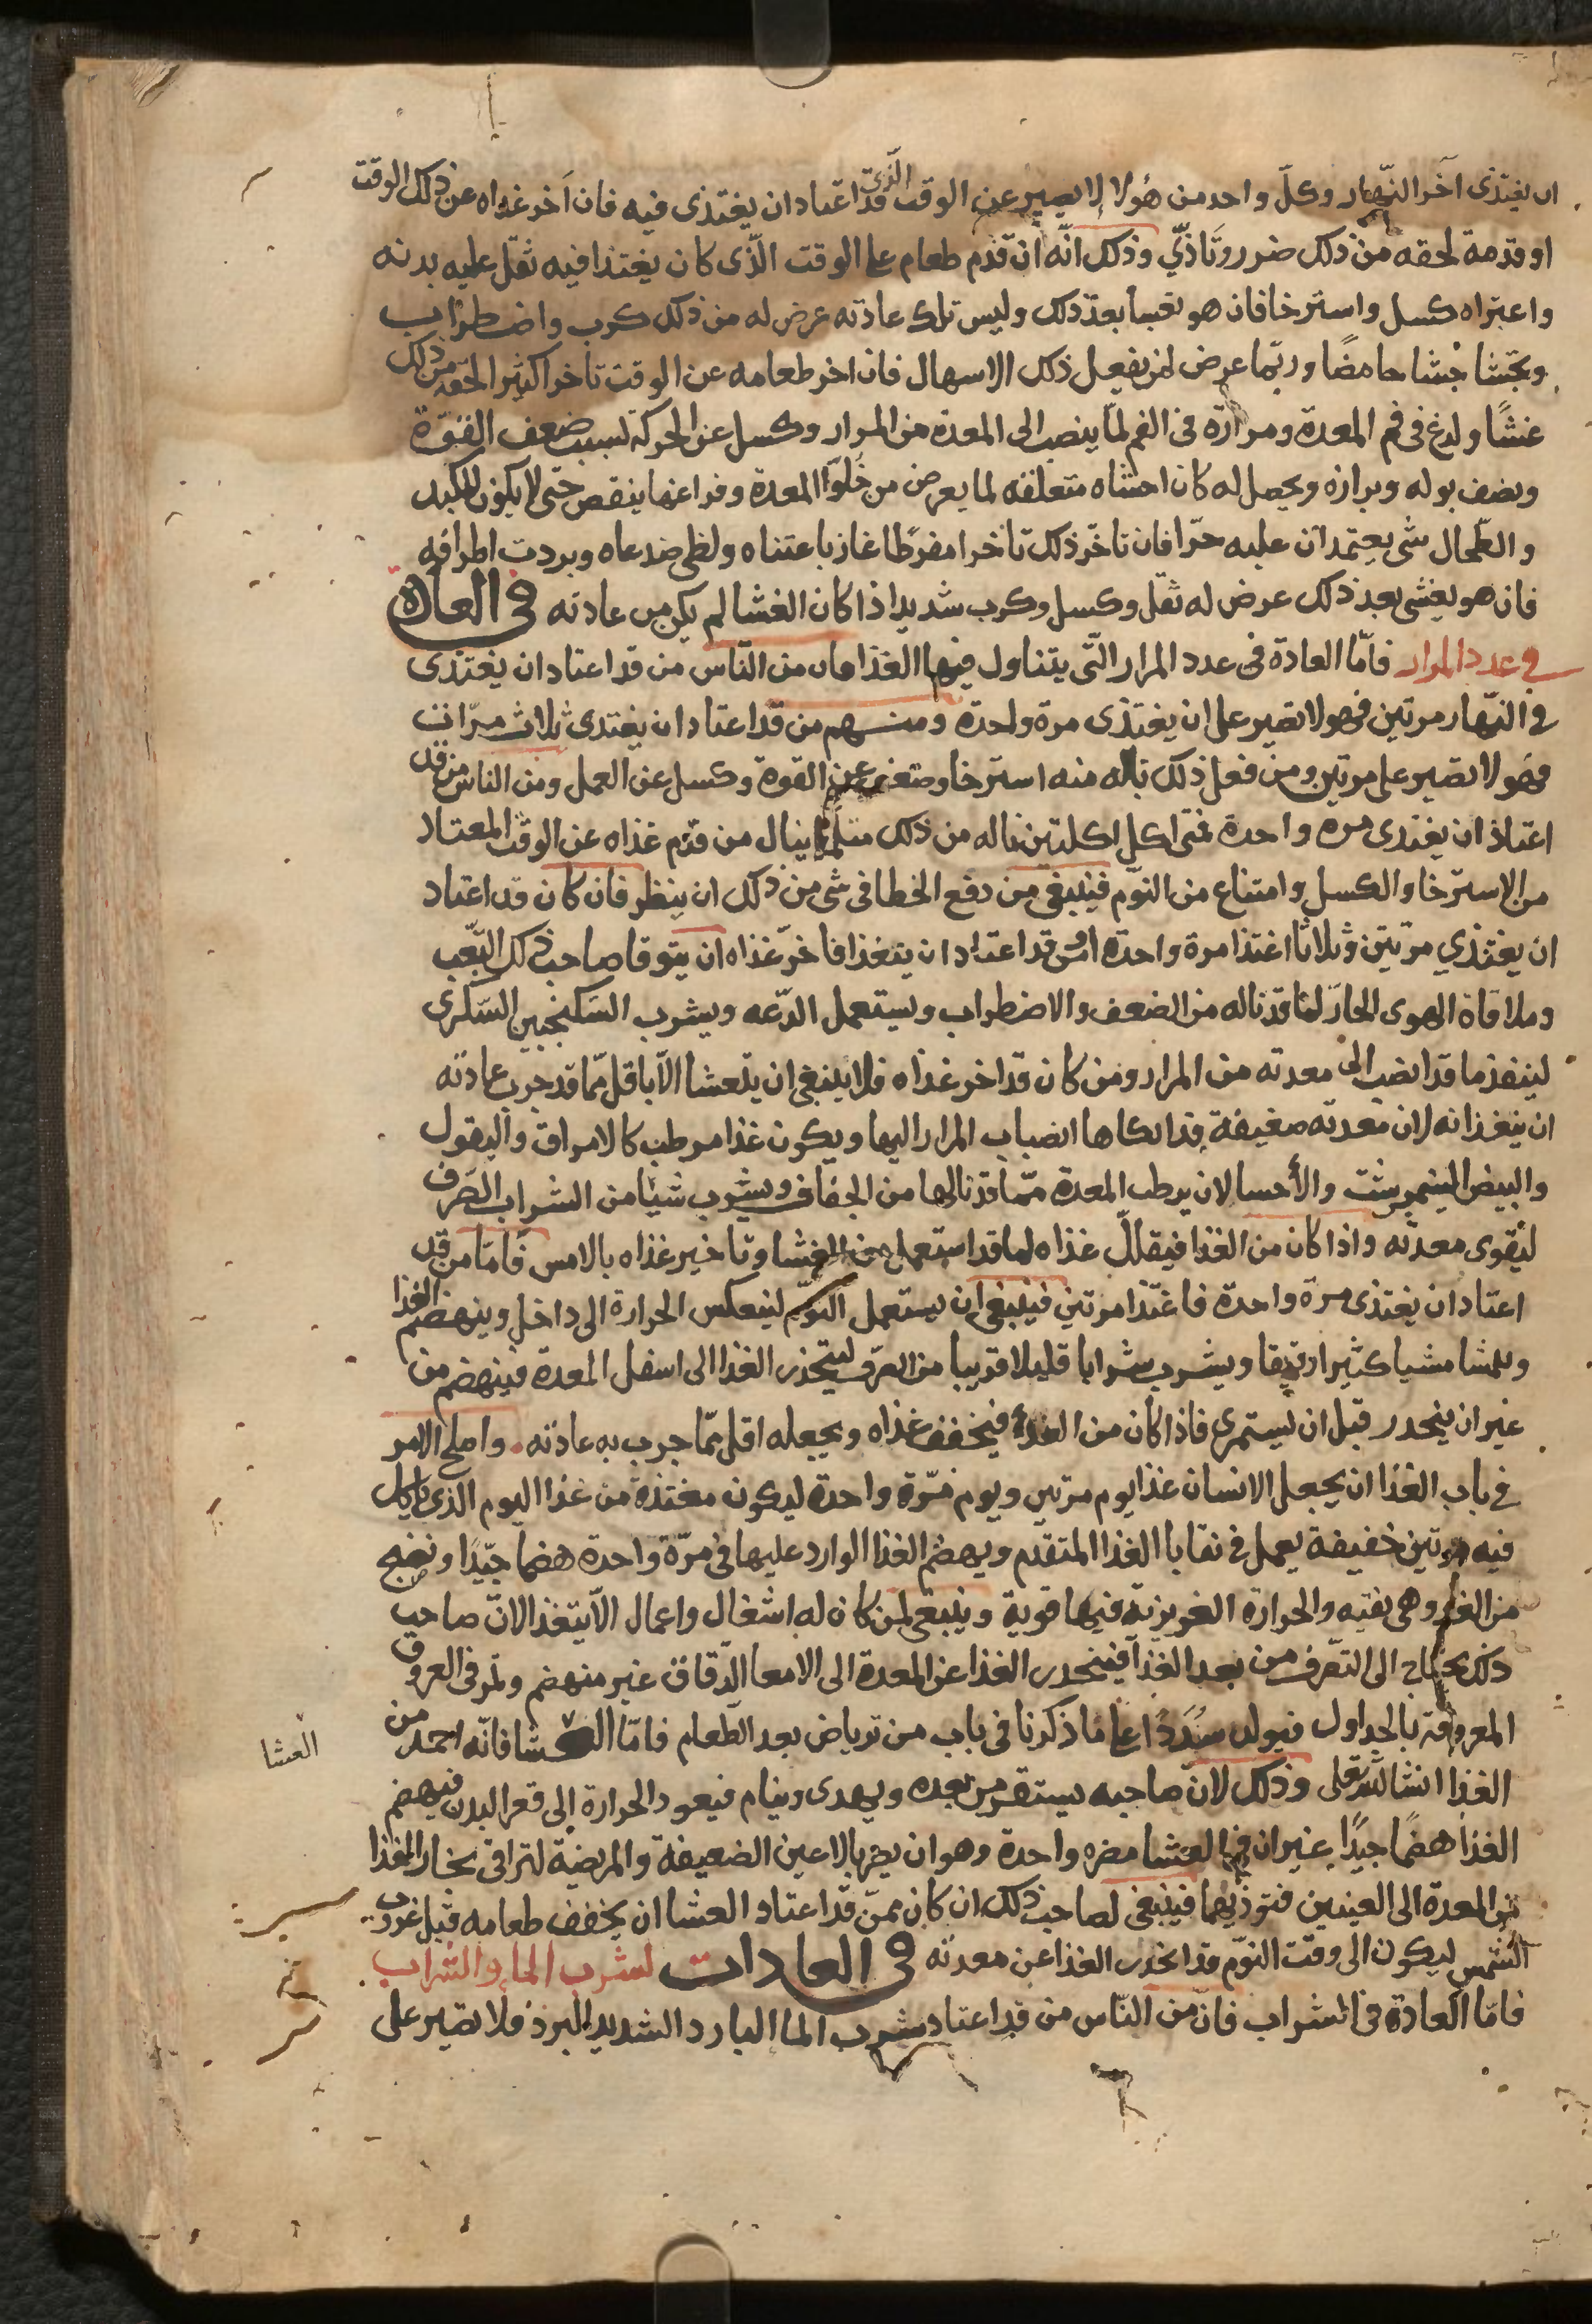 ان يغتذى آخر النهار وكلّ واحد من هؤلا لا يصبر عن الوقت الّذى قد اعتاد ان يغتذى فيه فان آخر غداه عن ذلك الوقت
او قدمه لحقه من ذلك ضرر وتاذّي وذلك انّه ان قدّم طعام على الوقت الّذى كان يغتذا فيه ثقل عليه بدنه
واعتراه كسل واسترخا فان هو تعشا بعد ذلك وليس تلك عادته عرض له من ذلك كرب واضطراب
وتجشا جشا حامضًا وربّما عرض لمن يفعل ذلك الاسهال فان اخر طعامه عن الوقت تاخر اكثير الحقه من ذلك
غشًا ولدغ فى فم المعدة ومرارة فى الفم لما ينصب الى المعدة من المرار وكسل عن الحركة لسبب ضعف القوّة
ونصف بوله وبرازه ويحصل له كان احشاه متعلقه لما يعرض من خلوّ المعدة وفراغها ينقص حتى لا يكون للكبد
والطحال شى يعتمدان عليه حرّا فان تاخّر ذلك تاخرا مفرطًا غاز باعتناه ولظى ضدعاه وبردت اطرافه
فان هو يغشى بعد ذلك عرض له ثقل وكسل وكرب شديد اذا كان الغشا لم يكن من عادته فى العادة
فى عدد المرار فامّا العادة فى عدد المرار الّتى يتناول فيها الغذا فان من النّاس من قد اعتاد ان يغتذى
فى النّهار مرتين فهو لا يصبر على ان يغتذى مرة واحدة ومنهم من قد اعتاد ان يغتدى ثلاث مرّات
فهو لا يصبر على مرتين ومن فعل ذلك ناله منه استرخا وضعف عن القوة وكسل عن العمل ومن الناس من قد
اعتاد ان يغتدى مره واحدة فمتى اكل اكلتين ناله من ذلك مثل ما ينال من قدّم غذاه عن الوقت المعتاد
من الاسترخا والكسل وامتناع من النوّم فينبغى من دفع الخطا فى شى من ذلك ان ينظر فان كان قد اعتاد
ان يغتذي مرتين وثلاثا اغتذا مرة واحدة او قد اعتاد ان يتغذا فاخرّ غذاه ان يتوقا صاحب ذلك التّعب
وملاقاة الهوى الحارّ لما قد ناله من الضعف والاضطراب ويستعمل الدّعه ويشرب السكنجبين السّكرى
لينفذ ما قد انصب الى معدته من المرار ومن كان قد اخر غذاه فلا ينبغى ان يتعشا الاّ باقل ممّا قد جرب عادته
ان يتغذا به لان معدته ضعيفة قد انكاها انصباب المرار اليها ويكون غذا مرطب كالامراق والبقول
والبيض النيمرشت والأحسا لان يرطب المعدة ممّا قد نالها من الجفاف ويشرب شيًا من الشراب الصّرف
ليقوى معدته واذا كان من الغذا فيقللّ غذاه لما قد استعمل من العشا وتاخير غذاه بالامس فامّا من قد
اعتاد ان يغتذى مرة واحدة فاغتذا مرتين فينبغى ان يستعمل النّوم لينعكس الحرارة الى داخل وينهضم الغذا
ويمشا مشيا كثيرا رقيقا ويشرب شرابا قليلا قريبا من الصّرف ليتحذر الغذا الى اسفل المعدة فينهضم من
غير ان ينحدر قبل ان يستمرى فاذا كان من الغدا فيخفف غذاه ويجعله اقل ممّا جرب به عادته واصلح الامر
فى باب الغذا ان يجعل الانسان غذا يوم مرتين ويوم مرّة واحدة ليكون معتذة من غذا اليوم الذى ياكل
فيه مرتين خفيفة يعمل فى نقايا الغذا المتقدّم ويهضم الغذا الوارد عليها فى مرّة واحدة هضما جيّدًا ونضج
من الغد وهى نقيه والحرارة الغريزية فيها قوية وينبغى لمن كان له اشغال واعمال الاّ يتغذا لانّ صاحب
ذلك يحتاج الى التّصرف من بعد الغذا فينحدر الغذا عن المعدة الى الامعا الدّقاق غير منهضم وتمر فى العروق
المعروفة بالجداول فيولد سُدَدًا على ما ذكرنا فى باب من ترياض بعد الطّعام فامّا العشا فانّه احمد من
العشا
الغذا انشا الله تعلى وذلك لانّ صاحبه يستقر من بعده ويهدى وينام فيعود الحرارة الى قعر البدن فيهضم
الغذا هضمًا جيّدًا غير ان فى العشا مضره واحدة وهو ان يضر بالاعين الضعيفة والمريضة لتراقى بخار الغذا
من المعدة الى العينين فتوذيهما فينبغى لصاحب ذلك ان كان ممّن قد اعتاد العشا ان يخفف طعامه قبل غروب
الشمس ليكون الى وقت النوّم قد انحدر الغذا عن معدته فى العادات لشرب الما والشراب
فامّا العادة فى الشراب فانّ من النّاس من قد اعتاد شرب الما البارد الشديد البرد فلا يصبر على